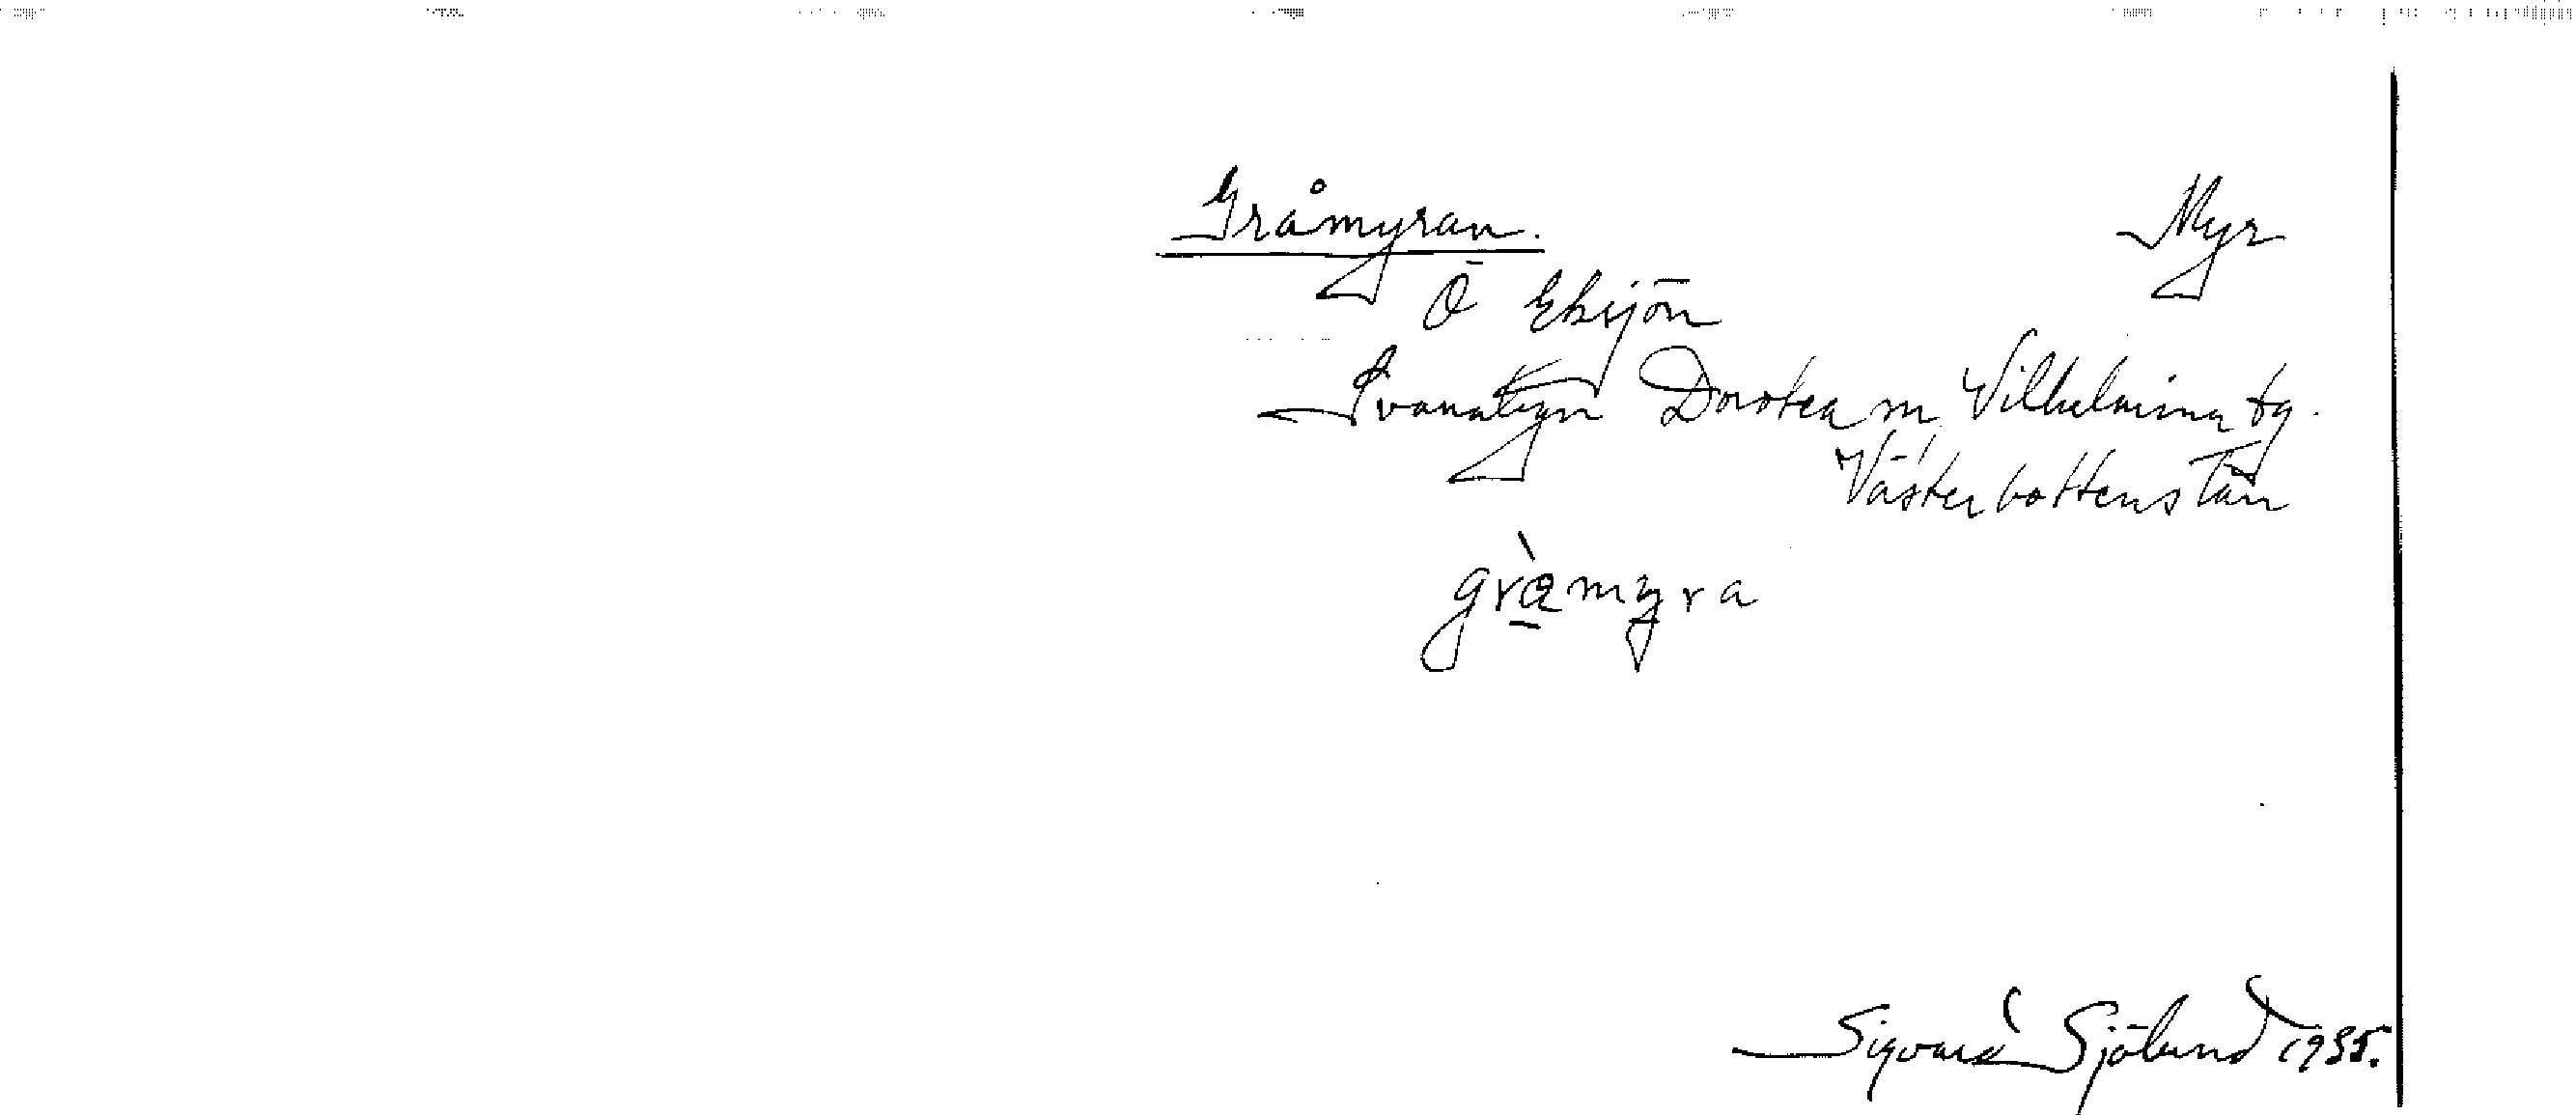 Gråmyran. Myr
Ö Eksjön
Svanabyn Dorotea m. Vilhelmina tg.
Västerbottens län
gràmyra
Sigvard Sjölund 1935.